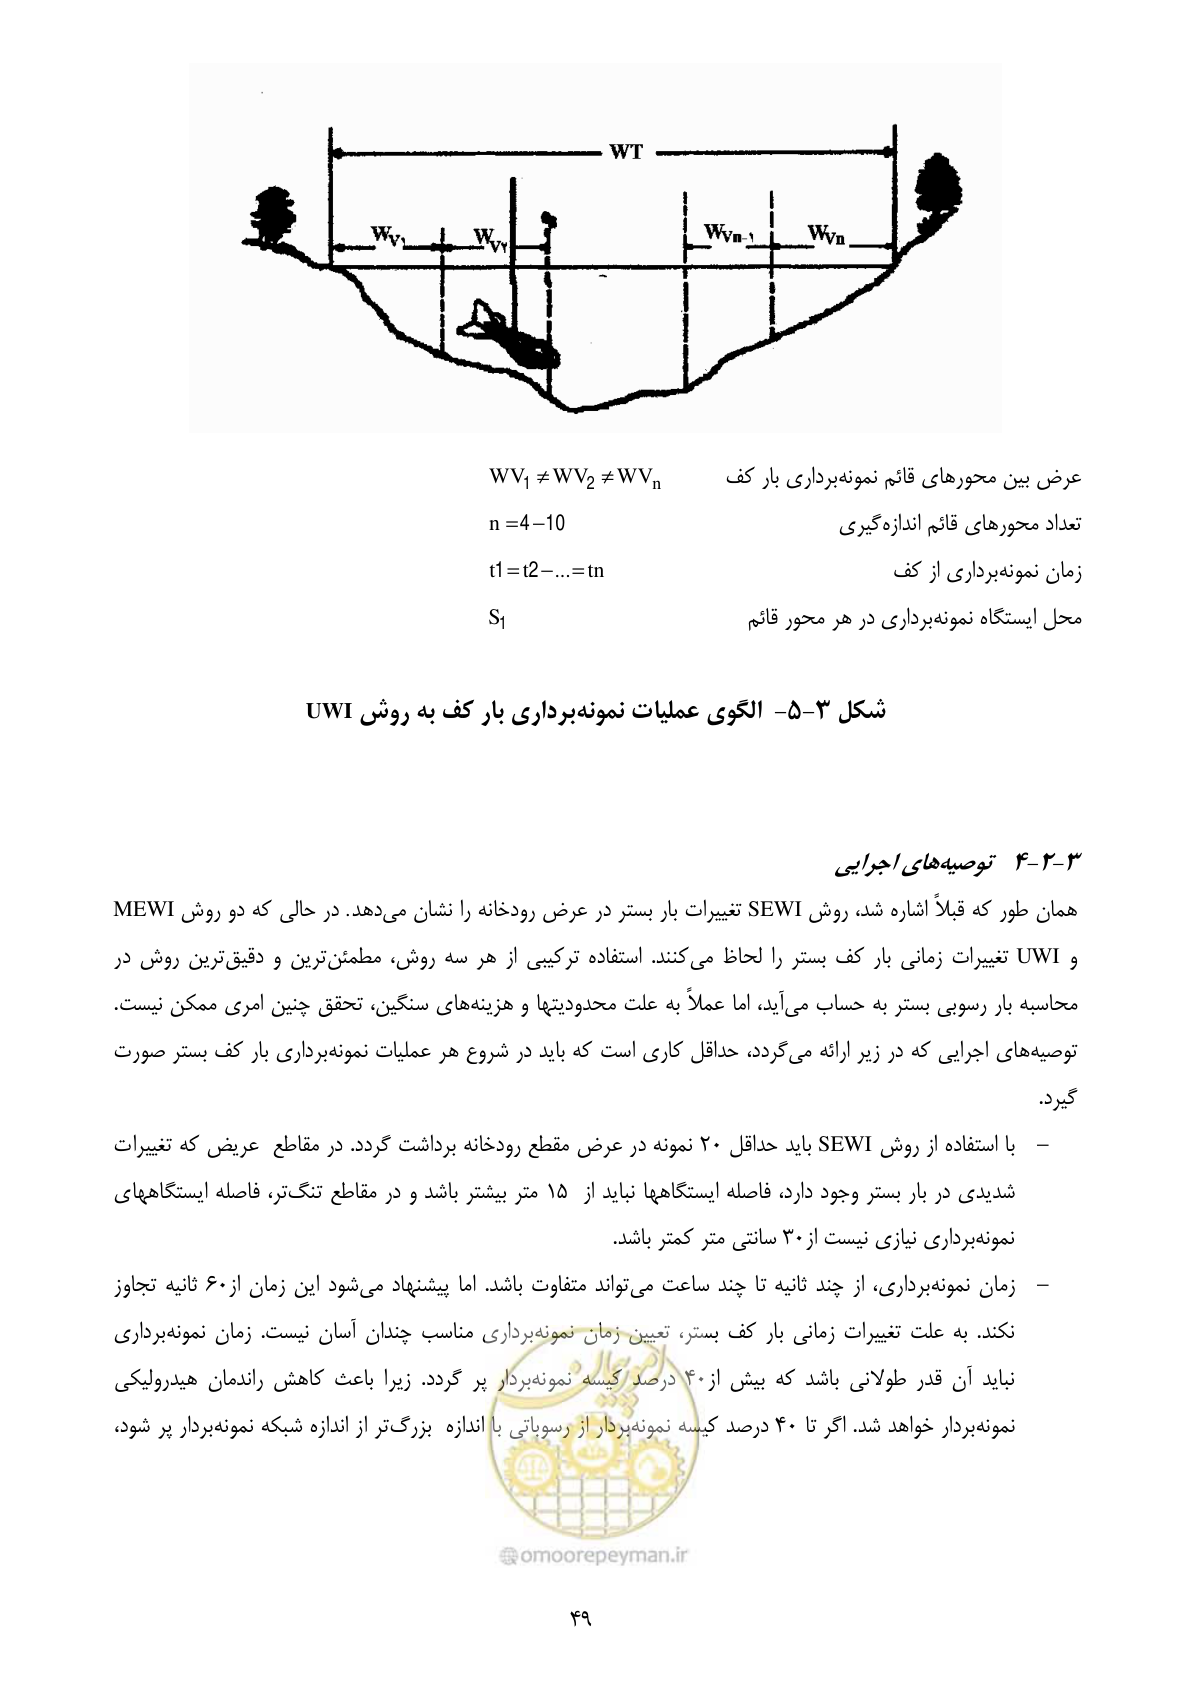 WT
WV۱ WV۲ WVn-۱ WVn
عرض بین محورهای قائم نمونه‌برداری بار کف WV1 ≠ WV2 ≠ WVn
تعداد محورهای قائم اندازه‌گیری n = 4 – 10
زمان نمونه‌برداری از کف t1 = t2 – ... = tn
محل ایستگاه نمونه‌برداری در هر محور قائم S1
شکل ۳-۵- الگوی عملیات نمونه‌برداری بار کف به روش UWI
۳-۲-۴ توصیه‌های اجرایی
همان طور که قبلاً اشاره شد، روش SEWI تغییرات بار بستر در عرض رودخانه را نشان می‌دهد. در حالی که دو روش MEWI
و UWI تغییرات زمانی بار کف بستر را لحاظ می‌کنند. استفاده ترکیبی از هر سه روش، مطمئن‌ترین و دقیق‌ترین روش در
محاسبه بار رسوبی بستر به حساب می‌آید، اما عملاً به علت محدودیتها و هزینه‌های سنگین، تحقق چنین امری ممکن نیست.
توصیه‌های اجرایی که در زیر ارائه می‌گردد، حداقل کاری است که باید در شروع هر عملیات نمونه‌برداری بار کف بستر صورت
گیرد.
– با استفاده از روش SEWI باید حداقل ۲۰ نمونه در عرض مقطع رودخانه برداشت گردد. در مقاطع عریض که تغییرات
شدیدی در بار بستر وجود دارد، فاصله ایستگاهها نباید از ۱۵ متر بیشتر باشد و در مقاطع تنگ‌تر، فاصله ایستگاههای
نمونه‌برداری نیازی نیست از ۳۰ سانتی متر کمتر باشد.
– زمان نمونه‌برداری، از چند ثانیه تا چند ساعت می‌تواند متفاوت باشد. اما پیشنهاد می‌شود این زمان از ۶۰ ثانیه تجاوز
نکند. به علت تغییرات زمانی بار کف بستر، تعیین زمان نمونه‌برداری مناسب چندان آسان نیست. زمان نمونه‌برداری
نباید آن قدر طولانی باشد که بیش از ۴۰ درصد کیسه نمونه‌بردار پر گردد. زیرا باعث کاهش راندمان هیدرولیکی
نمونه‌بردار خواهد شد. اگر تا ۴۰ درصد کیسه نمونه‌بردار از رسوباتی با اندازه بزرگ‌تر از اندازه شبکه نمونه‌بردار پر شود،
امور پیمان
@omoorepeyman.ir
۴۹